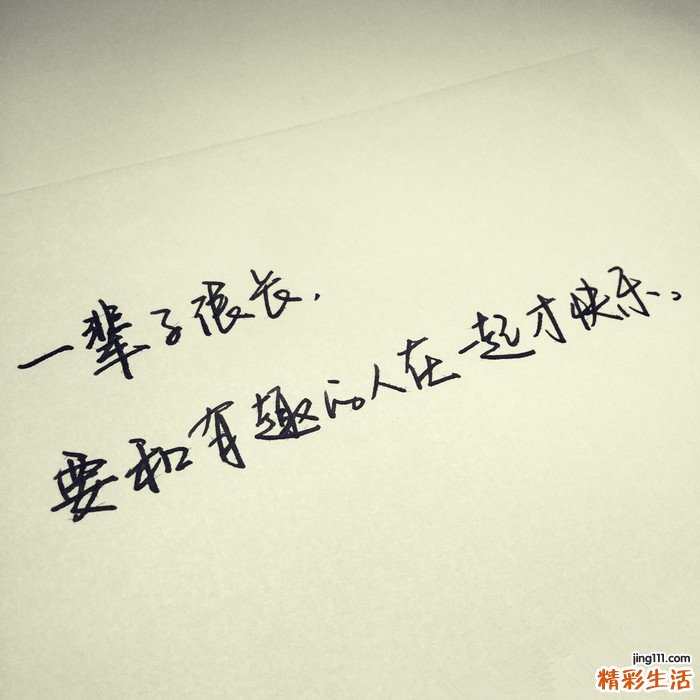 一辈子很长,
要和有趣的人在一起才快乐。
jing111.com
精彩生活